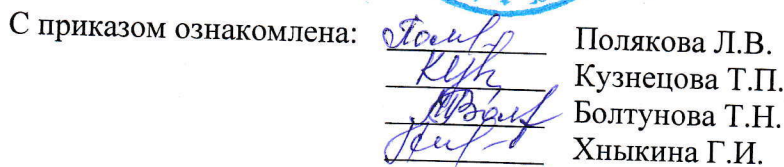 С приказом ознакомлена: Полякова Л.В.
Кузнецова Т.П.
Болтунова Т.Н.
Хныкина Г.И.